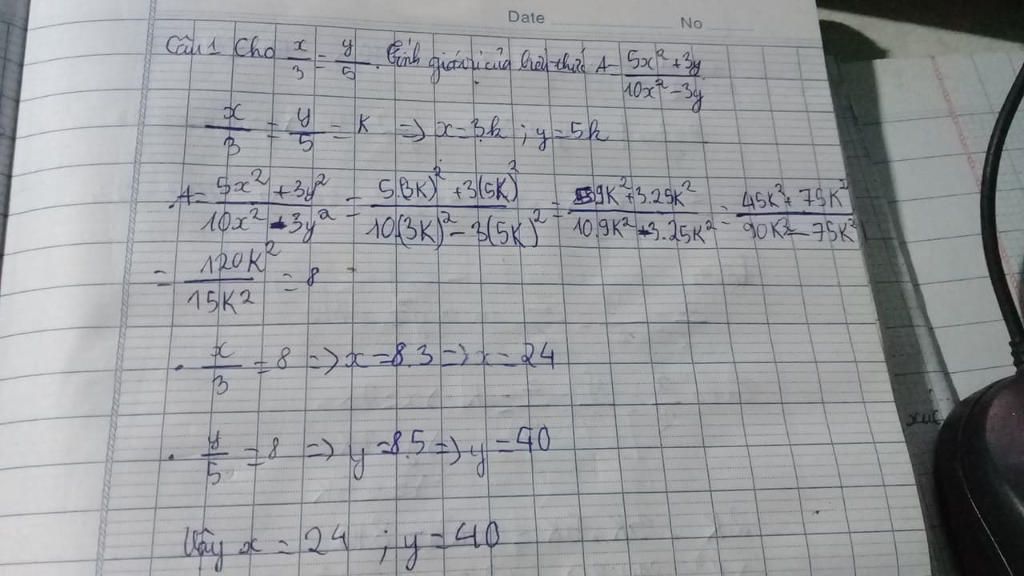 Date No
Câu 1 Cho x/3 = y/5. Tính giá trị của biểu thức A = (5x² + 3y)/(10x² - 3y)
x/3 = y/5 = K => x = 3k ; y = 5k
A = (5x² + 3y²)/(10x² - 3y²) = (5(3K)² + 3(5K)²)/(10(3K)² - 3(5K)²) = (5.9K² + 3.25K²)/(10.9K² - 3.25K²) = (45K² + 75K²)/(90K² - 75K²)
= 120K²/15K² = 8
. x/3 = 8 => x = 8.3 => x = 24
. y/5 = 8 => y = 8.5 => y = 40
Vậy x = 24 ; y = 40